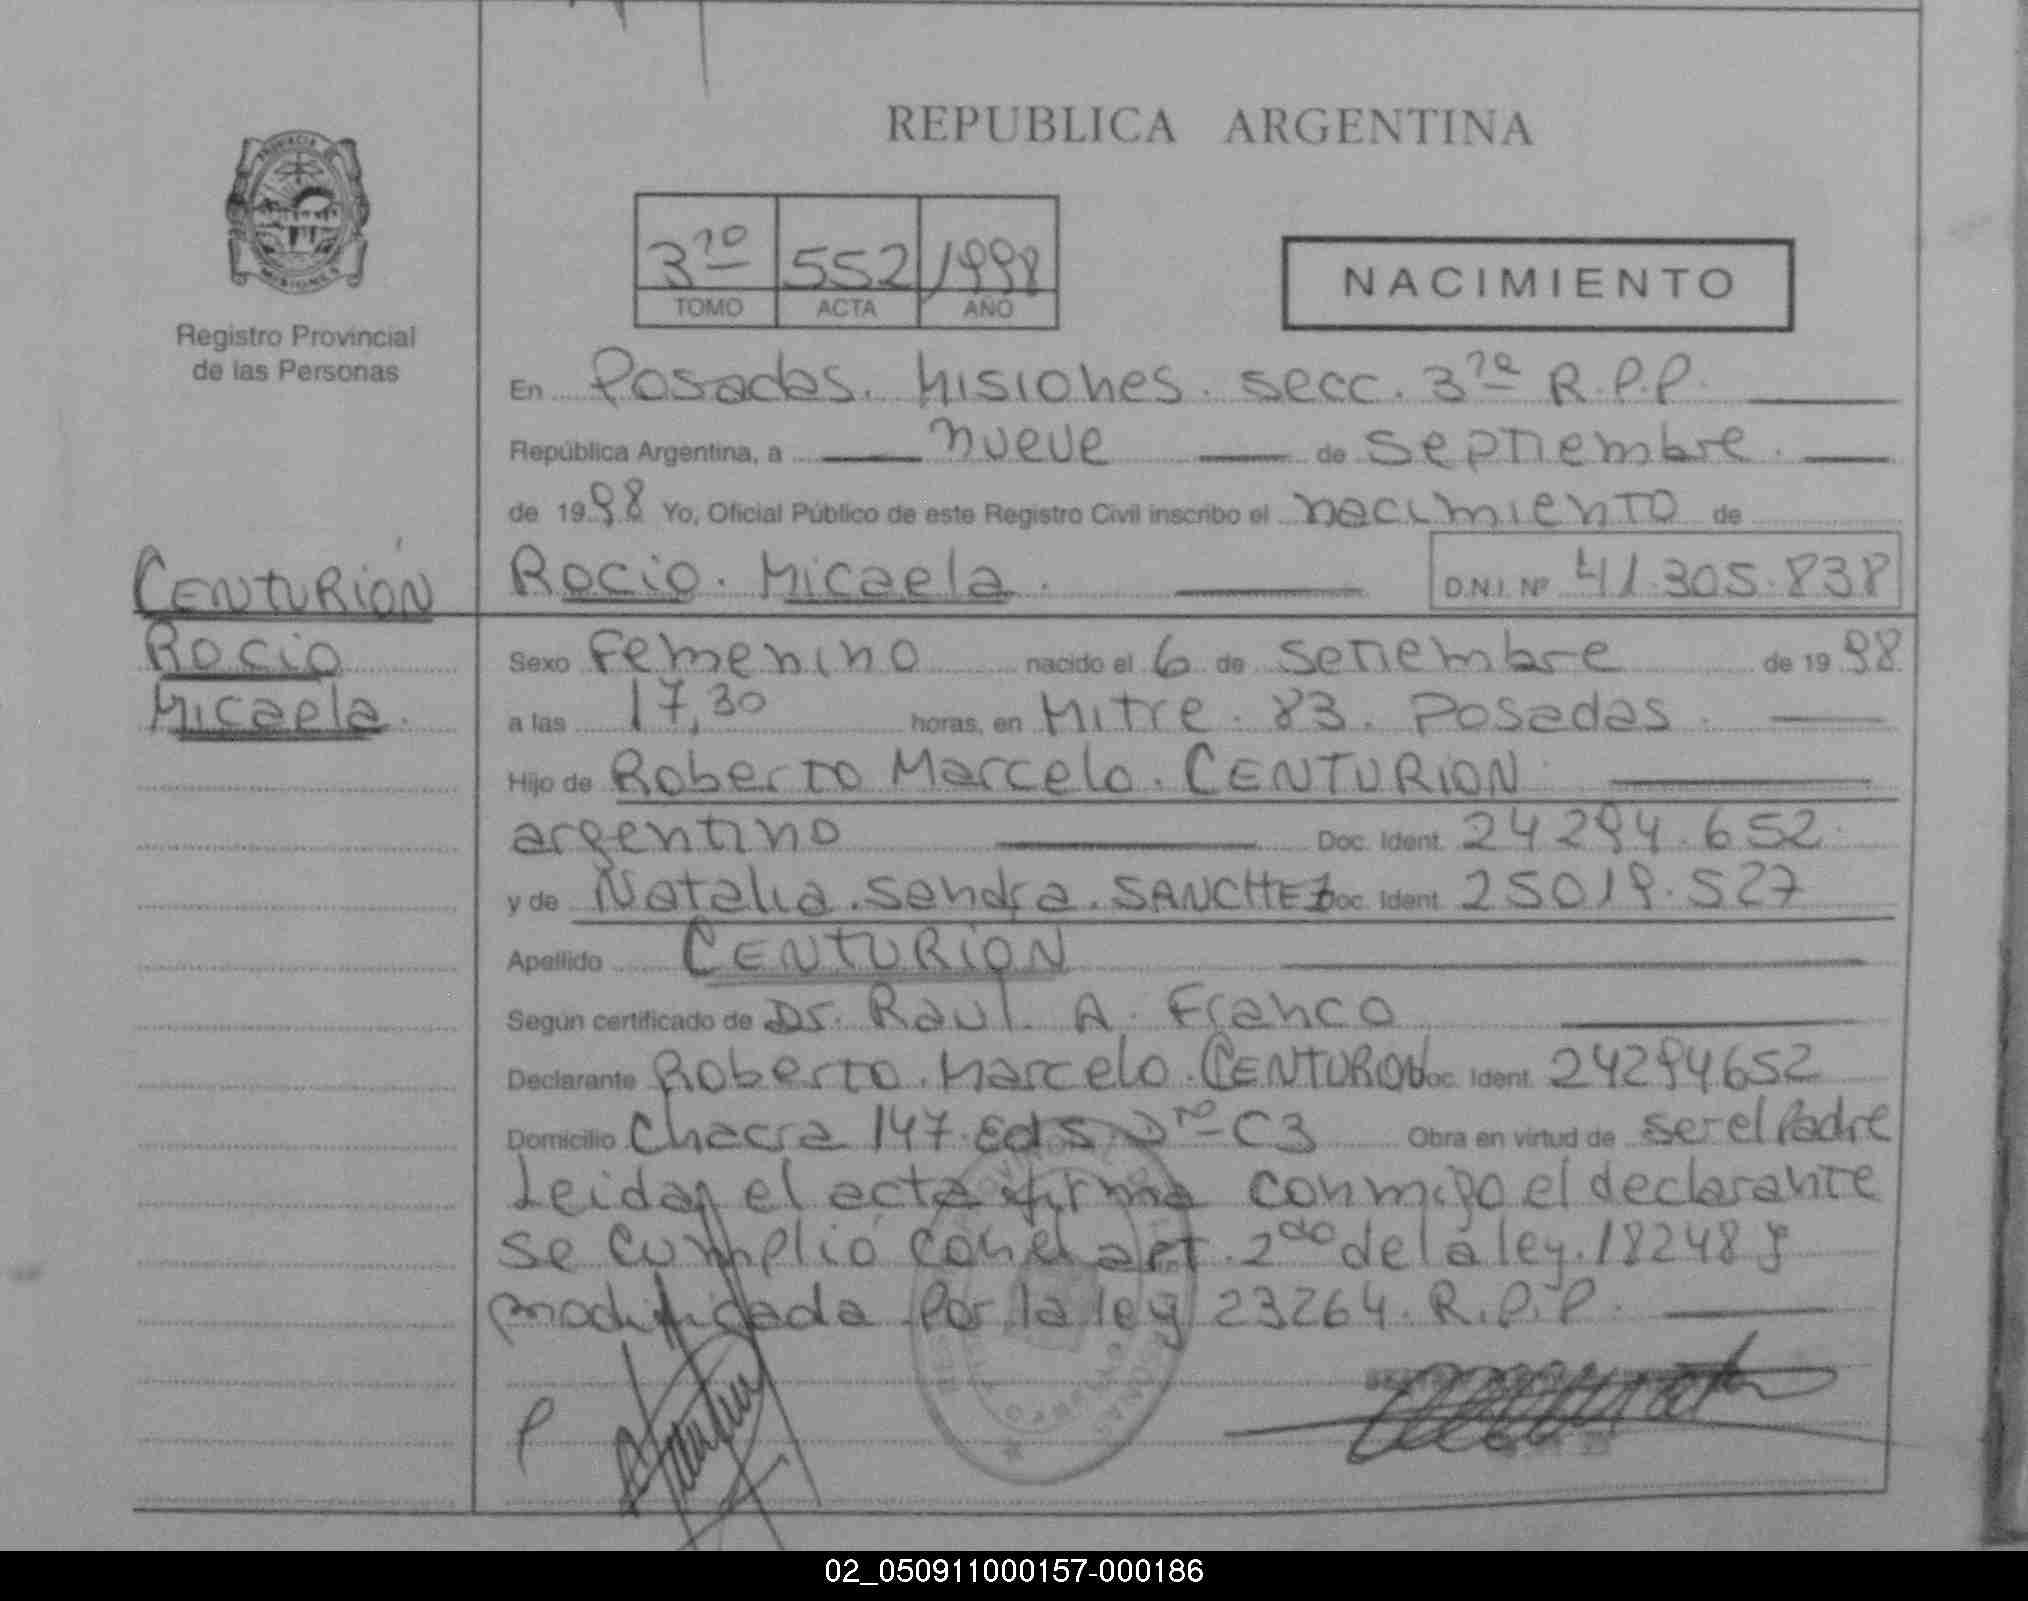 REPUBLICA ARGENTINA
3ro 552 1998
TOMO ACTA AÑO
NACIMIENTO
Registro Provincial
de las Personas
En Posadas. Misiones. secc. 3ra R.P.P.
República Argentina, a nueve de septiembre.
de 1998 Yo, Oficial Público de este Registro Civil inscribo el nacimiento de
Rocio. Micaela. D.N.I. Nº 41.305.838
CENTURIÓN
Rocio
Micaela.
Sexo Femenino nacido el 6 de setiembre de 1998
a las 17,30 horas, en Mitre. 83. Posadas.
Hijo de Roberto Marcelo. CENTURION
argentino Doc. Ident. 24294.652
y de Natalia. Sandra. SANCHEZ Doc. Ident. 25019.527
Apellido CENTURION
Según certificado de Dr. Raul. A. Franco
Declarante Roberto. Marcelo. CENTURION Doc. Ident. 24294652
Domicilio Chacra 147. Ed 5 C3 Obra en virtud de ser el Padre
Leida el acta firma conmigo el declarante
se cumplió con el art. 2do de la ley. 18248 y
modificada por la ley 23264. R.P.P.
P
02_050911000157-000186